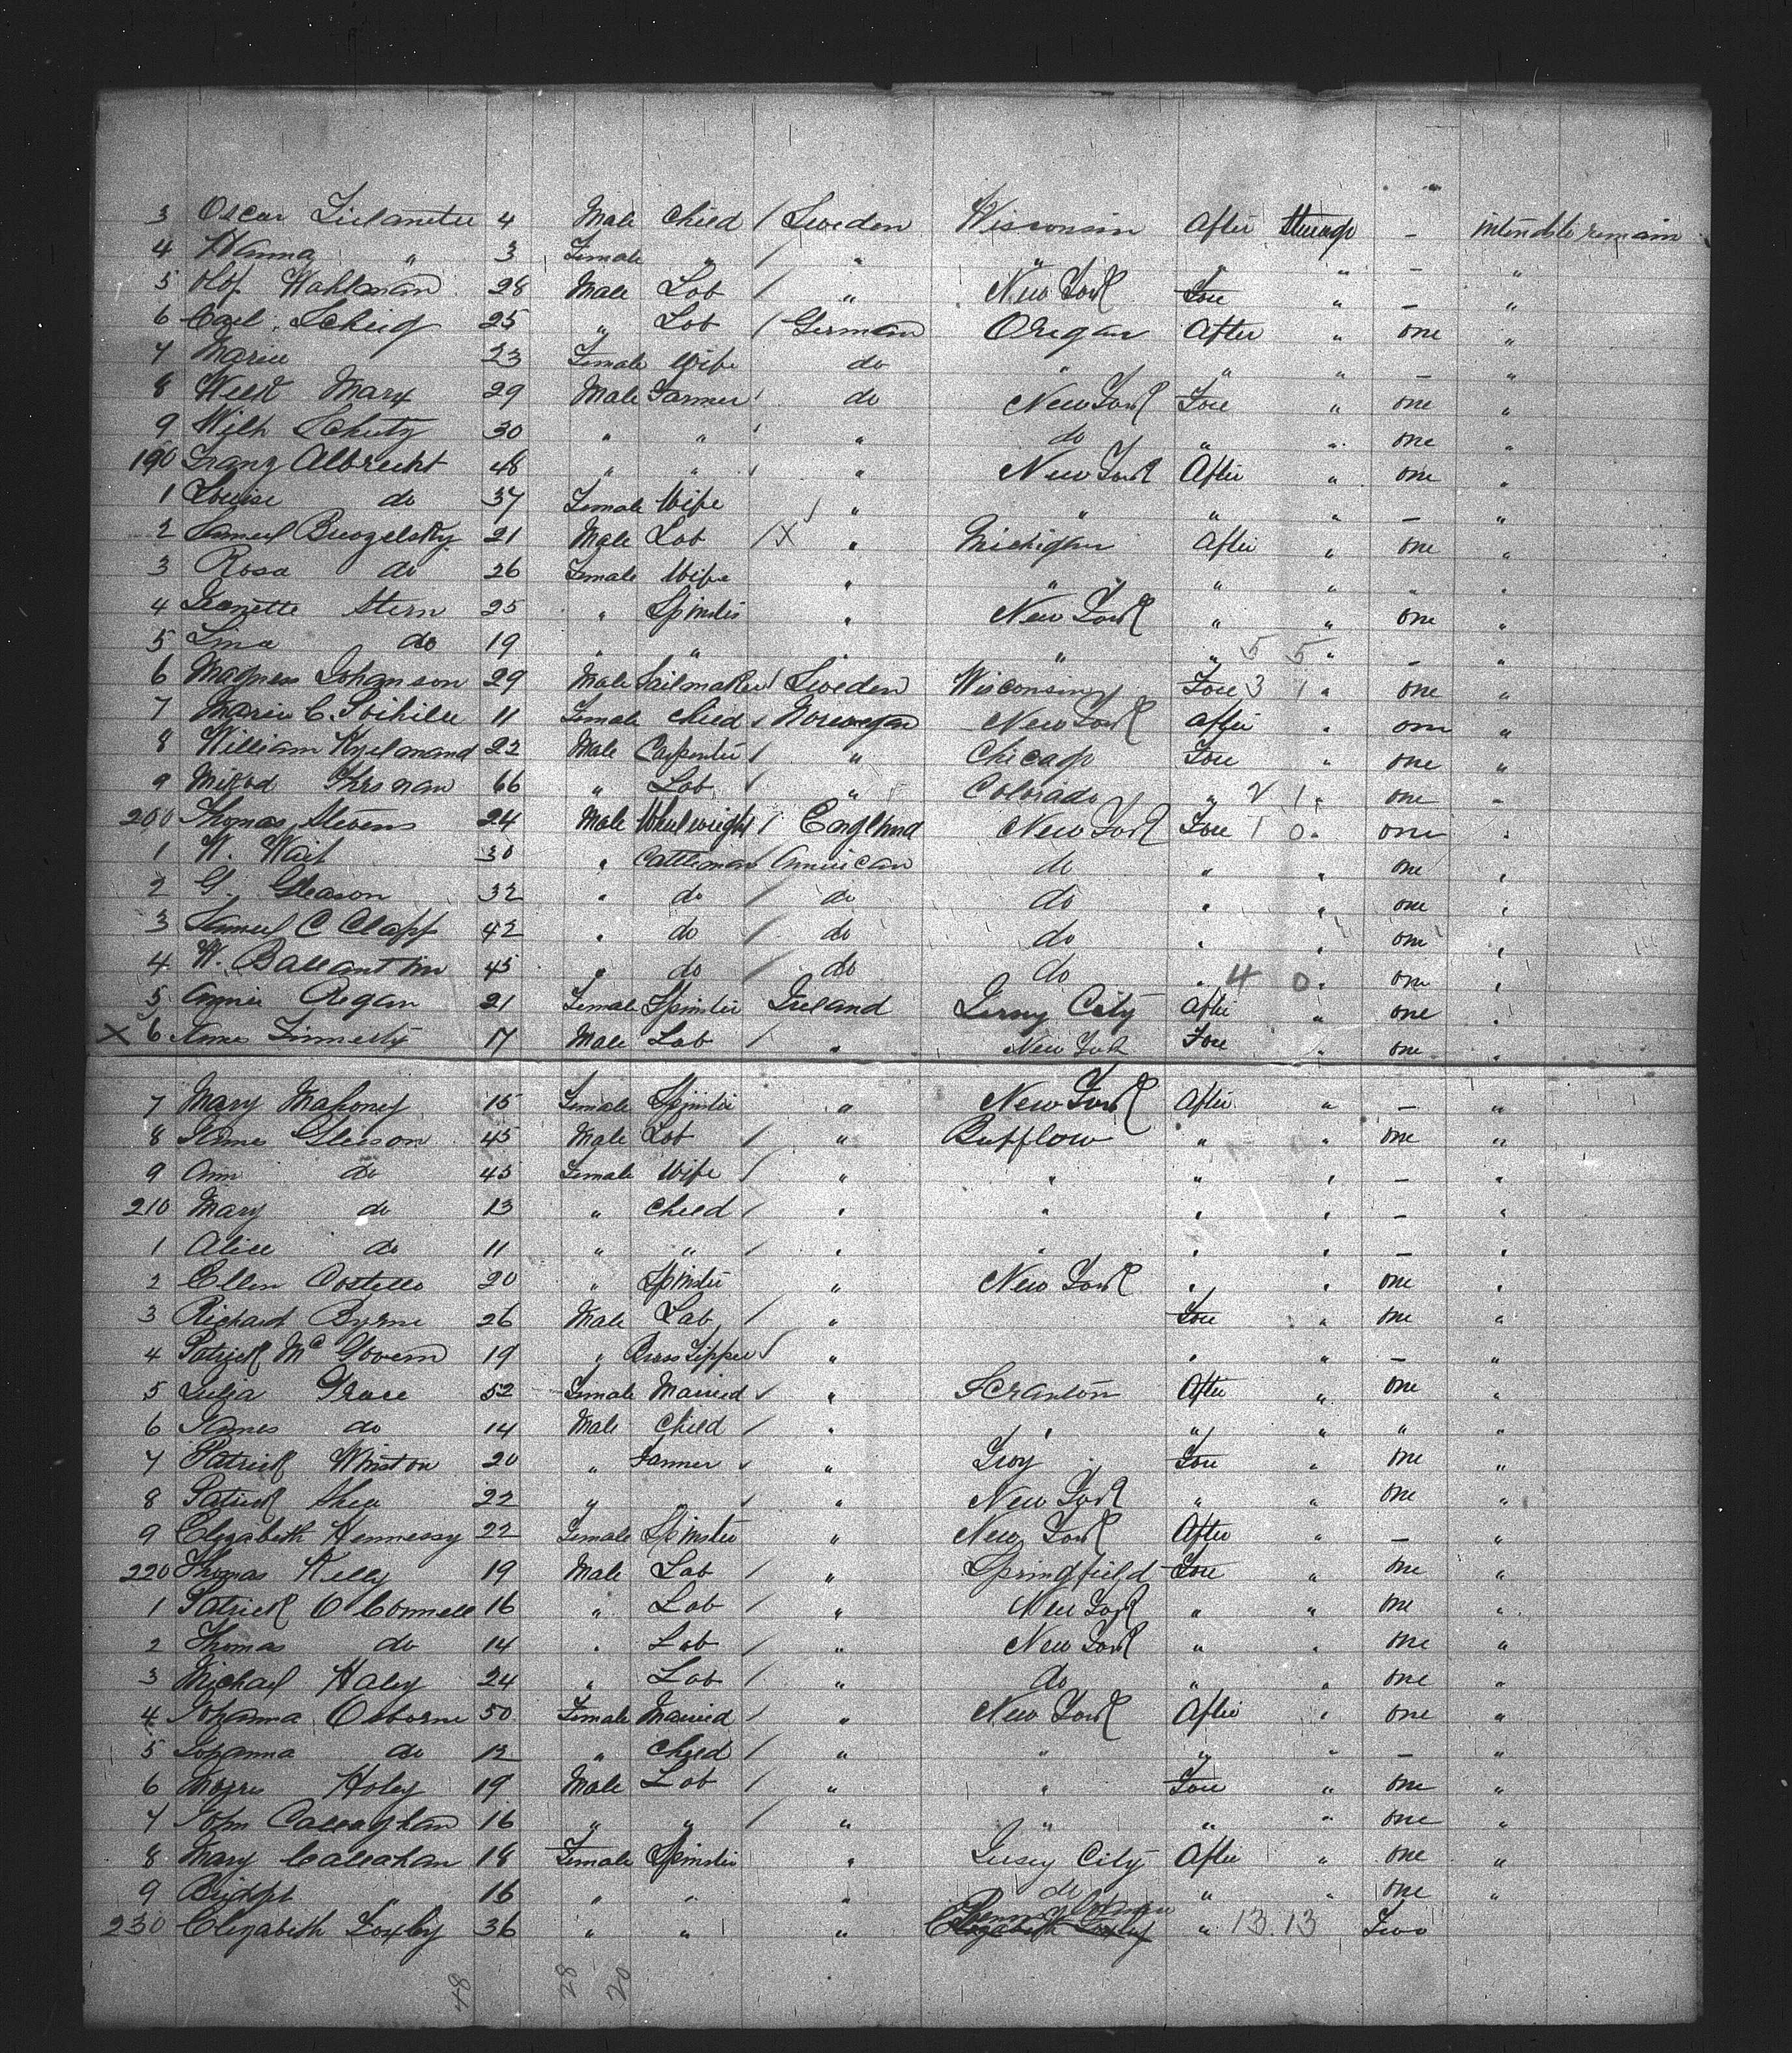 3 Oscar 4 Male Child / Sweden Wisconsin After Steerage – intend to remain
4 Hanna " 3 Female " / " " " " – "
5 Olof Wahlman 28 Male Lab / " New York Fore " – "
6 Carl Scheig 25 " Lab / German Oregan After " one "
7 Marie 23 Female Wife do " " " – "
8 Marx 29 Male Farmer / do New York Fore " one "
9 Wilh Schutz 30 " " / " do " " one "
190 Franz Albrecht 48 " " / " New York After " one "
1 Louise do 37 Female Wife / " " " " – "
2 Samuel 21 Male Lab / X " Michigan After " one "
3 Rosa do 26 Female Wife " " " " " "
4 Jeanette Stern 25 " Spinster " New York " " one "
5 Lina do 19 " " " " " 5 5 " – "
6 Magnus Johanson 29 Male Sailmaker / Sweden Wisconsin Fore 3 1 " one "
7 Marie C. 11 Female Child / Norwegan New York After " one "
8 William 22 Male Carpenter / " Chicago Fore " one "
9 66 " Lab / " Colorado " 2 1 " one "
200 Thomas Stevens 24 Male Wheelwright / England New York Fore 1 0 " one "
1 W. Wait 30 " Cattleman / American do " " one "
2 G. Gleason 32 " do / do do " " one "
3 Samuel C Clapp 42 " do / do do " " one "
4 W. Ballantine 45 " do / do do " 4 0 " one "
5 Annie Regan 21 Female Spinster Ireland Jersy City After " one "
X 6 James 17 Male Lab / " New York Fore " one "
7 Mary Mahoney 15 Female Spinster " New York After " – "
8 James Gleeson 45 Male Lab / " Bufflow " " one "
9 Ann do 45 Female Wife / " " " " – "
210 Mary do 13 " Child / " " " " – "
1 Alice do 11 " " / " " " " – "
2 Ellen Costello 20 " Spinster " New York " " one "
3 Richard Byrne 26 Male Lab / " Fore " one "
4 Patrick McGovern 19 " Brass / " " " – "
5 Julia Grace 52 Female Married / " Scranton After " one "
6 James do 14 Male Child / " " " " " "
7 Patrick Winston 20 " Farmer / " Troy Fore " one "
8 Patrick Shea 22 " / " New York " " one "
9 Elizabeth Hennessy 22 Female Spinster " New York After " – "
220 Thomas Kelly 19 Male Lab / " Springfield Fore " one "
1 Patrick O Connell 16 " Lab / " New York " " one "
2 Thomas do 14 " Lab / " New York " " one "
3 Michael Haley 24 " Lab / " do " " one "
4 Johanna Osborne 50 Female Married / " New York After " one "
5 Johanna do 12 " Child / " " " " – "
6 Morris Holey 19 Male Lab / " " Fore " one "
7 John Callaghan 16 " " / " " " " one "
8 Mary Callahan 18 Female Spinster " Jersey City After " one "
9 Bridget " 16 " " " do " " one "
230 Elizabeth Foxley 36 " " " Elizabeth Foxley " 13 13 Two
48 28 20